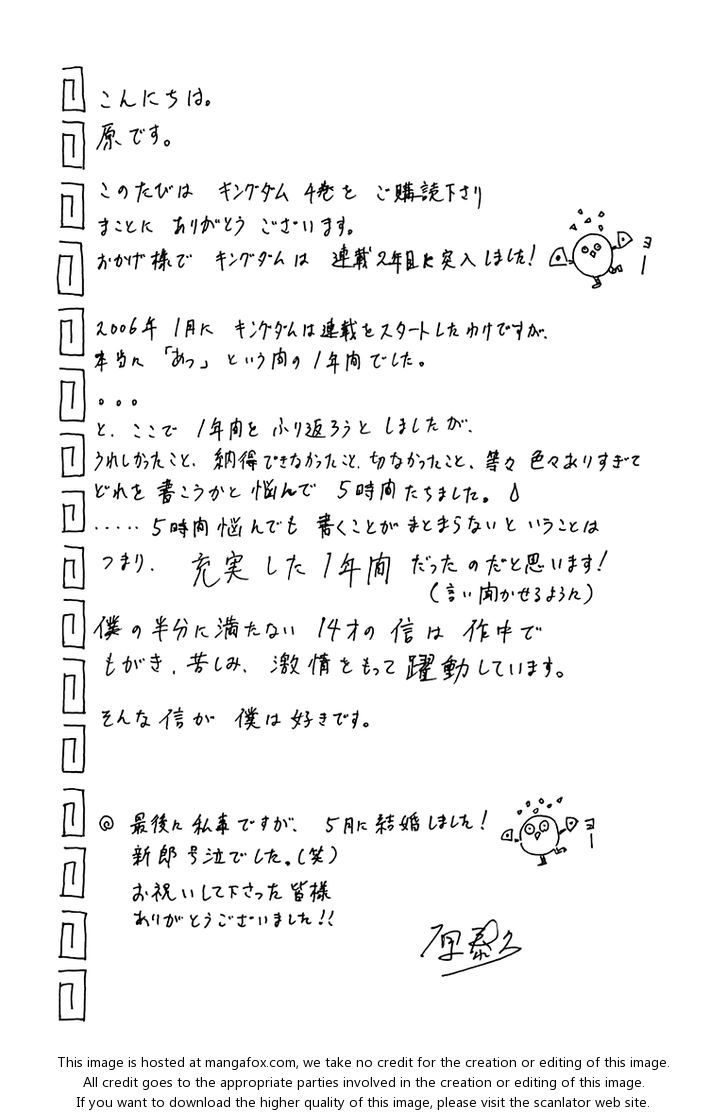 こんにちは。
原です。
このたびは キングダム 4巻を ご購読下さり
まことに ありがとう ございます。
おかげ様で キングダムは 連載2年目に突入しました!
ヨー
2006年 1月に キングダムは連載をスタートしたわけですが、
本当に 「あっ」 という間の 1年間でした。
。。。
と、ここで 1年間を ふり返ろうと しましたが、
うれしかったこと、納得できなかったこと、切なかったこと、等々 色々ありすぎて
どれを 書こうかと 悩んで 5時間たちました。
‥‥‥5時間 悩んでも 書くことが まとまらないと いうことは
つまり、 充実した1年間 だったのだと思います!
(言い聞かせるように)
僕の半分に満たない 14才の 信は 作中で
もがき、苦しみ、 激情をもって 躍動しています。
そんな信が 僕は好きです。
◎ 最後に 私事ですが、 5月に結婚しました!
ヨー
新郎号泣でした。(笑)
お祝いして下さった皆様
ありがとうございました!!
原泰久
This image is hosted at mangafox.com, we take no credit for the creation or editing of this image.
All credit goes to the appropriate parties involved in the creation or editing of this image.
If you want to download the higher quality of this image, please visit the scanlator web site.